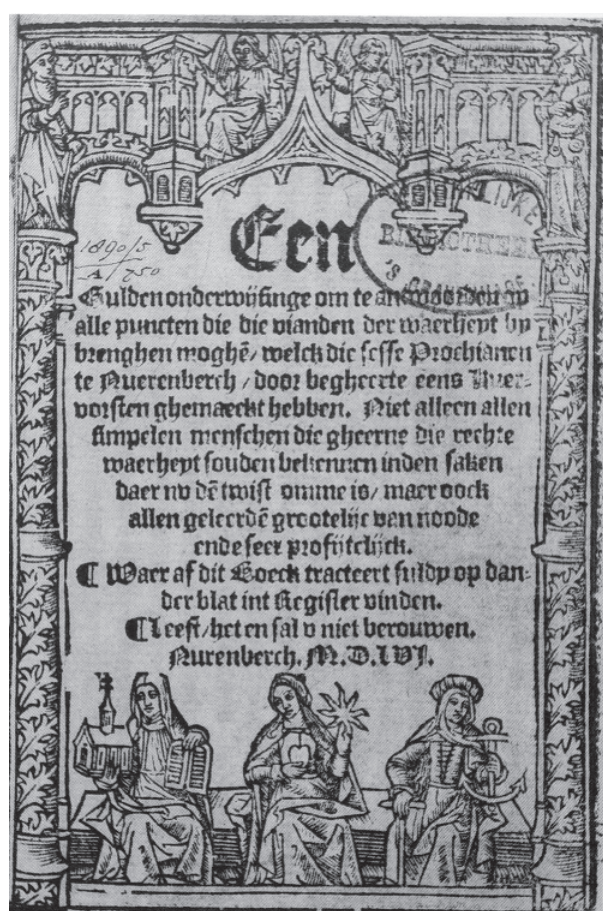 Een
1890/5
A/750
BIBLIOTHEEK
Gulden onderwijsinge om te antwoorden op
alle puncten die die vianden der waerheyt by
brenghen moghē/ welck die sesse Prochianen
te Nuerenberch / door begheerte eens Kuer-
vorsten ghemaeckt hebben. Niet alleen allen
simpelen menschen die gheerne die rechte
waerheyt souden bekennen inden saken
daer nv dē twist omme is/ maer oock
allen geleerdē grootelijc van noode
ende seer profijtelijck.
¶ Waer af dit Boeck tracteert suldy op dan-
der blat int Register vinden.
¶ Leest/ het en sal v niet berouwen.
Nurenberch. M.D.LVI.